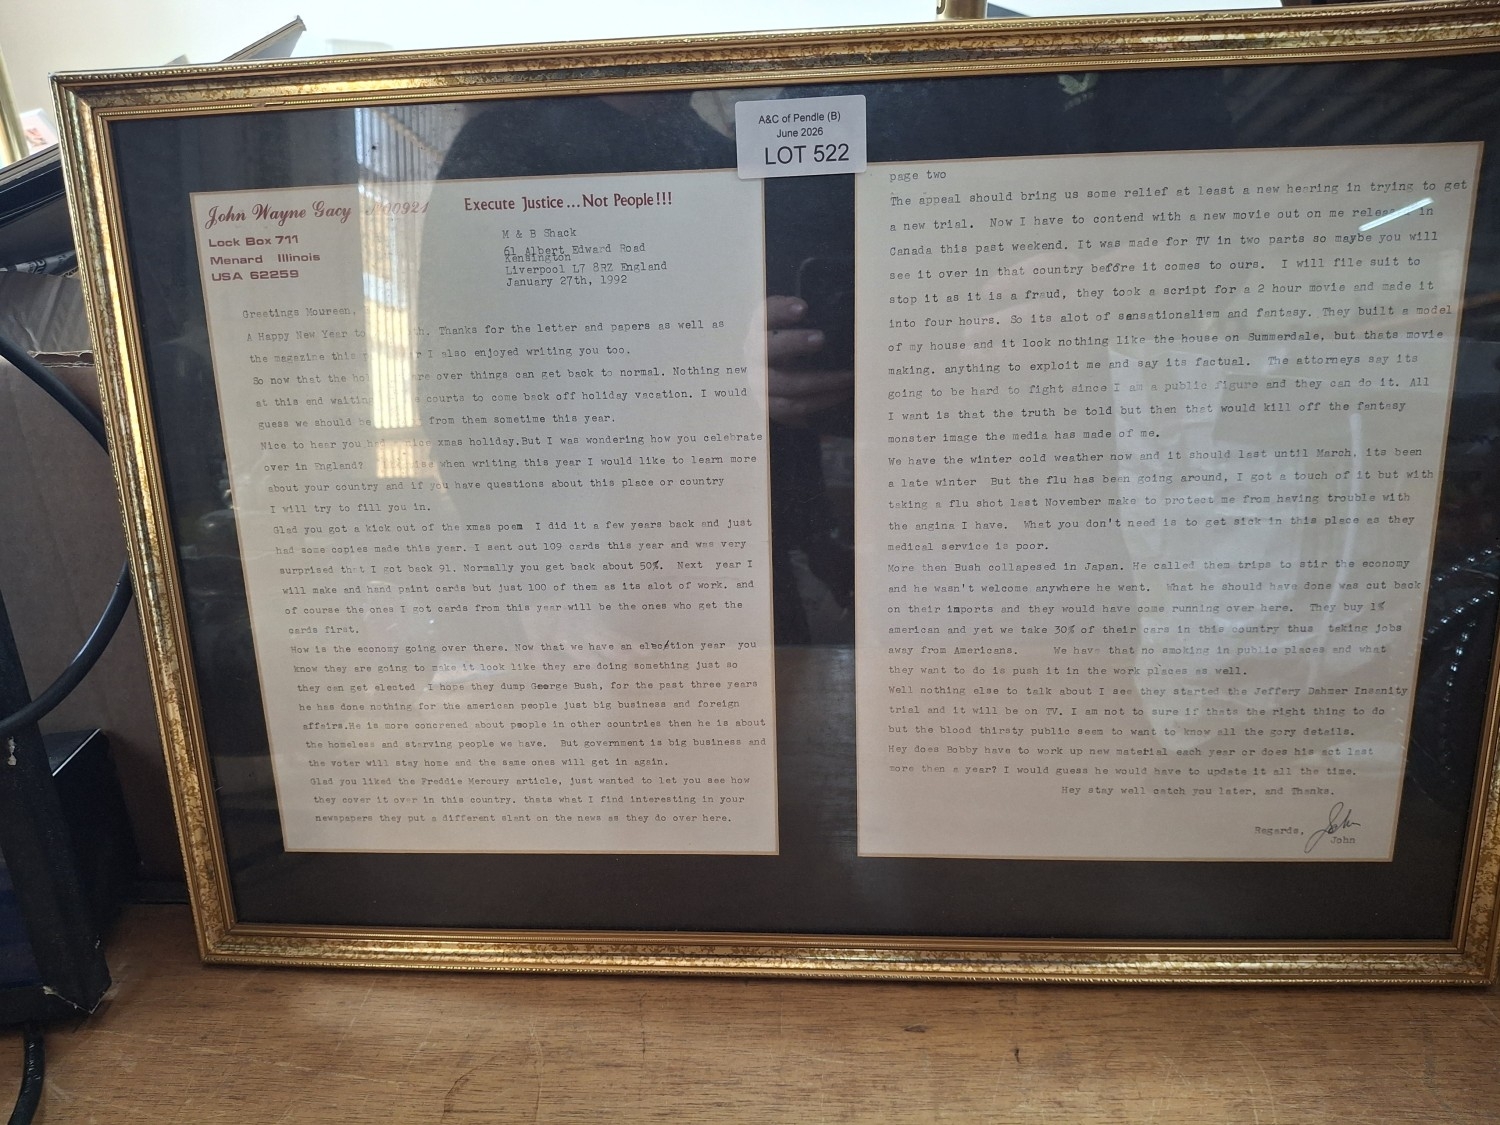 A&C of Pendle (B)
June 2026
LOT 522
John Wayne Gacy N00921
Execute Justice...Not People!!!
Lock Box 711
Menard Illinois
USA 62259
M & B Shack
61 Albert Edward Road
Kensington
Liverpool L7 8RZ England
January 27th, 1992
Greetings Moureen,
A Happy New Year to th. Thanks for the letter and papers as well as
the magazine this I also enjoyed writing you too.
So now that the are over things can get back to normal. Nothing new
at this end waiting courts to come back off holiday vacation. I would
guess we should be from them sometime this year.
Nice to hear you had nice xmas holiday.But I was wondering how you celebrate
over in England? when writing this year I would like to learn more
about your country and if you have questions about this place or country
I will try to fill you in.
Glad you got a kick out of the xmas poem I did it a few years back and just
had some copies made this year. I sent out 109 cards this year and was very
surprised that I got back 91. Normally you get back about 50%. Next year I
will make and hand paint cards but just 100 of them as its alot of work. and
of course the ones I got cards from this year will be the ones who get the
cards first.
How is the economy going over there. Now that we have an election year you
know they are going to make it look like they are doing something just so
they can get elected I hope they dump George Bush, for the past three years
he has done nothing for the american people just big business and foreign
affairs.He is more concrened about people in other countries then he is about
the homeless and starving people we have. But government is big business and
the voter will stay home and the same ones will get in again.
Glad you liked the Freddie Mercury article, just wanted to let you see how
they cover it over in this country. thats what I find interesting in your
newspapers they put a different slant on the news as they do over here.
page two
The appeal should bring us some relief at least a new hearing in trying to get
a new trial. Now I have to contend with a new movie out on me in
Canada this past weekend. It was made for TV in two parts so maybe you will
see it over in that country before it comes to ours. I will file suit to
stop it as it is a fraud, they took a script for a 2 hour movie and made it
into four hours. So its alot of sensationalism and fantasy. They built a model
of my house and it look nothing like the house on Summerdale, but thats movie
making. anything to exploit me and say its factual. The attorneys say its
going to be hard to fight since I am a public figure and they can do it. All
I want is that the truth be told but then that would kill off the fantasy
monster image the media has made of me.
We have the winter cold weather now and it should last until March, its been
a late winter But the flu has been going around, I got a touch of it but with
taking a flu shot last November make to protect me from having trouble with
the angina I have. What you don't need is to get sick in this place as they
medical service is poor.
More then Bush collapesed in Japan. He called them trips to stir the economy
and he wasn't welcome anywhere he went. What he should have done was cut back
on their imports and they would have come running over here. They buy 1%
american and yet we take 30% of their cars in this country thus taking jobs
away from Americans. We have that no smoking in public places and what
they want to do is push it in the work places as well.
Well nothing else to talk about I see they started the Jeffery Dahmer Insanity
trial and it will be on TV. I am not to sure if thats the right thing to do
but the blood thirsty public seem to want to know all the gory details.
Hey does Bobby have to work up new material each year or does his act last
more then a year? I would guess he would have to update it all the time.
Hey stay well catch you later, and Thanks.
Regards, John
John